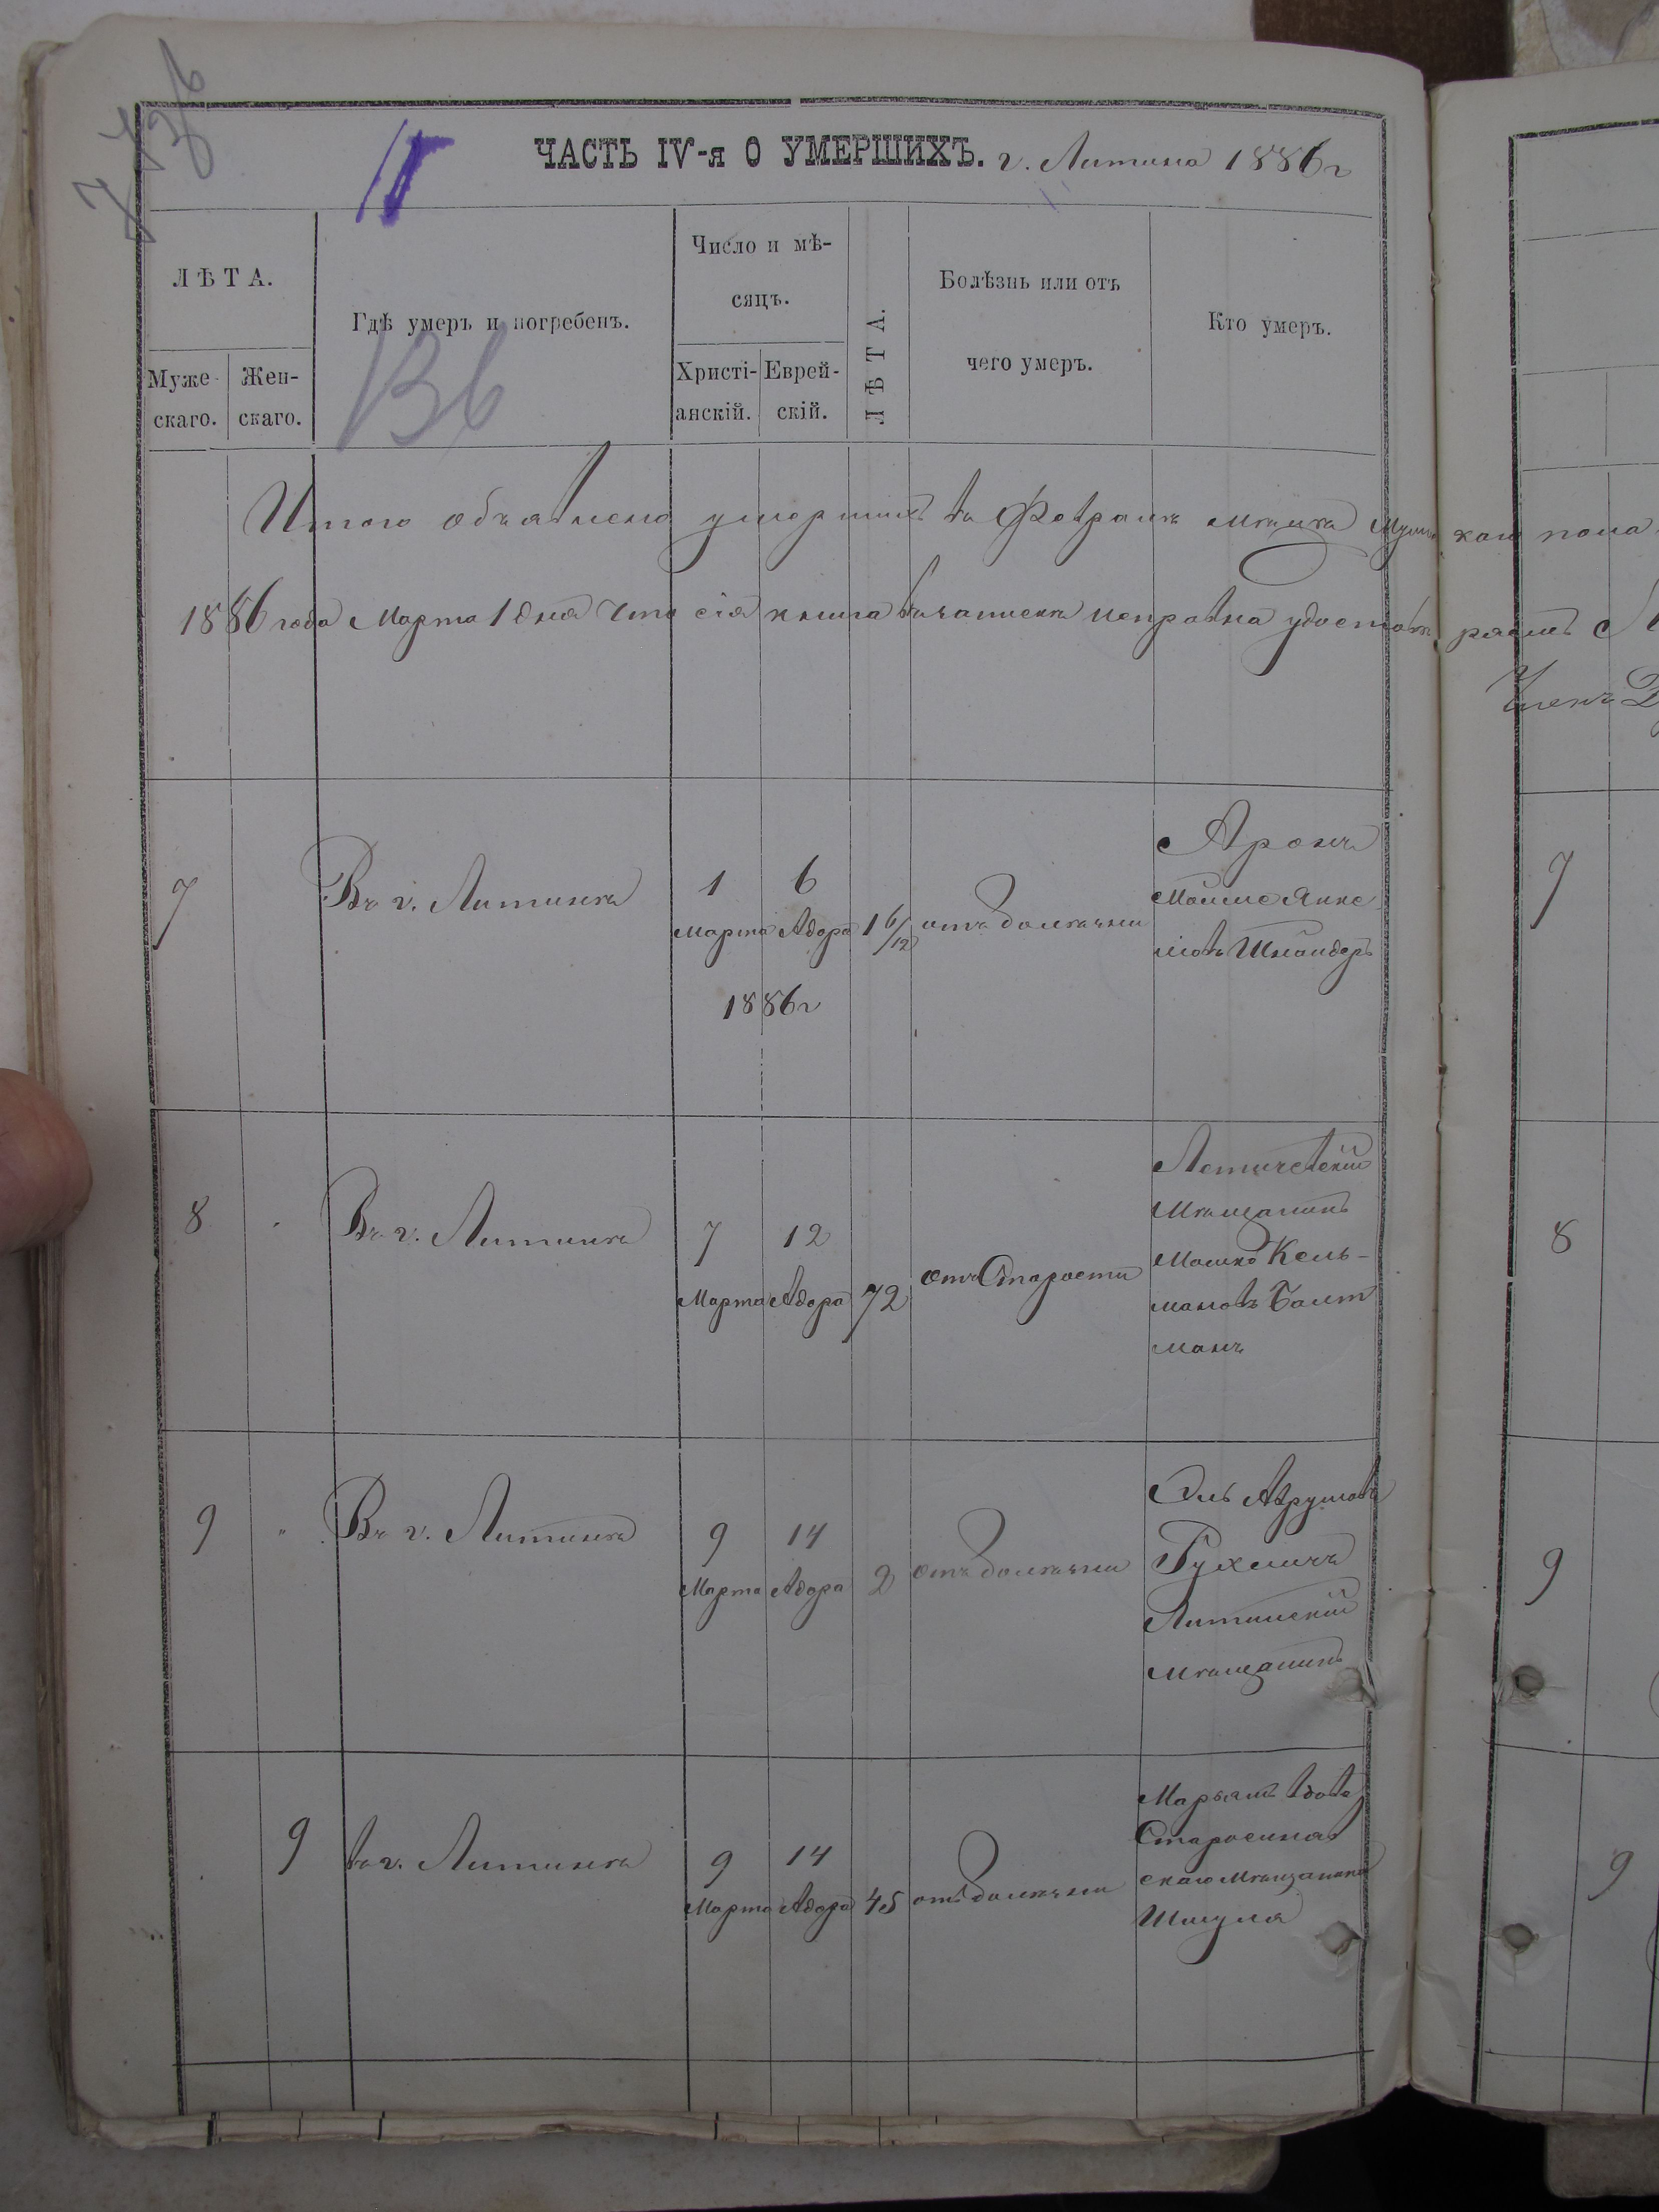 ЧАСТЬ IV-я О УМЕРШИХЪ. г. Литина 1886 г
ЛѢТА.
Муже-
скаго.
Жен-
скаго.
Гдѣ умеръ и погребенъ.
Число и мѣ-
сяцъ.
Христі-
анскій.
Еврей-
скій.
ЛѢТА.
Болѣзнь или отъ
чего умеръ.
Кто умеръ.
136
Итого объявлено умершихъ въ Февралѣ мѣсяца Мужскаго пола
1886 года Марта 1 дня что сія книга въ запискѣ исправна удостовѣряемъ
Членъ
7
Въ г. Литинѣ
1
Марта
6
Адора
1886 г
1 6/12
отъ болѣзни
Аронъ
Мошше Янке-
лювъ Шнайдеръ
7
8
Въ г. Литинѣ
7
Марта
12
Адора
72
отъ Старости
Летичевскій
Мѣщанинъ
Мошко Кель-
мановъ Балт
манъ
8
9
Въ г. Литинѣ
9
Марта
14
Адора
2
отъ болѣзни
Эль Аврумовъ
Рухличъ
Литинскій
Мѣщанинъ
9
9
въ г. Литинѣ
9
Марта
14
Адора
45
отъ болѣзни
Марьямъ вдова
Старосиняв
скаго Мѣщанина
Шмуля
9